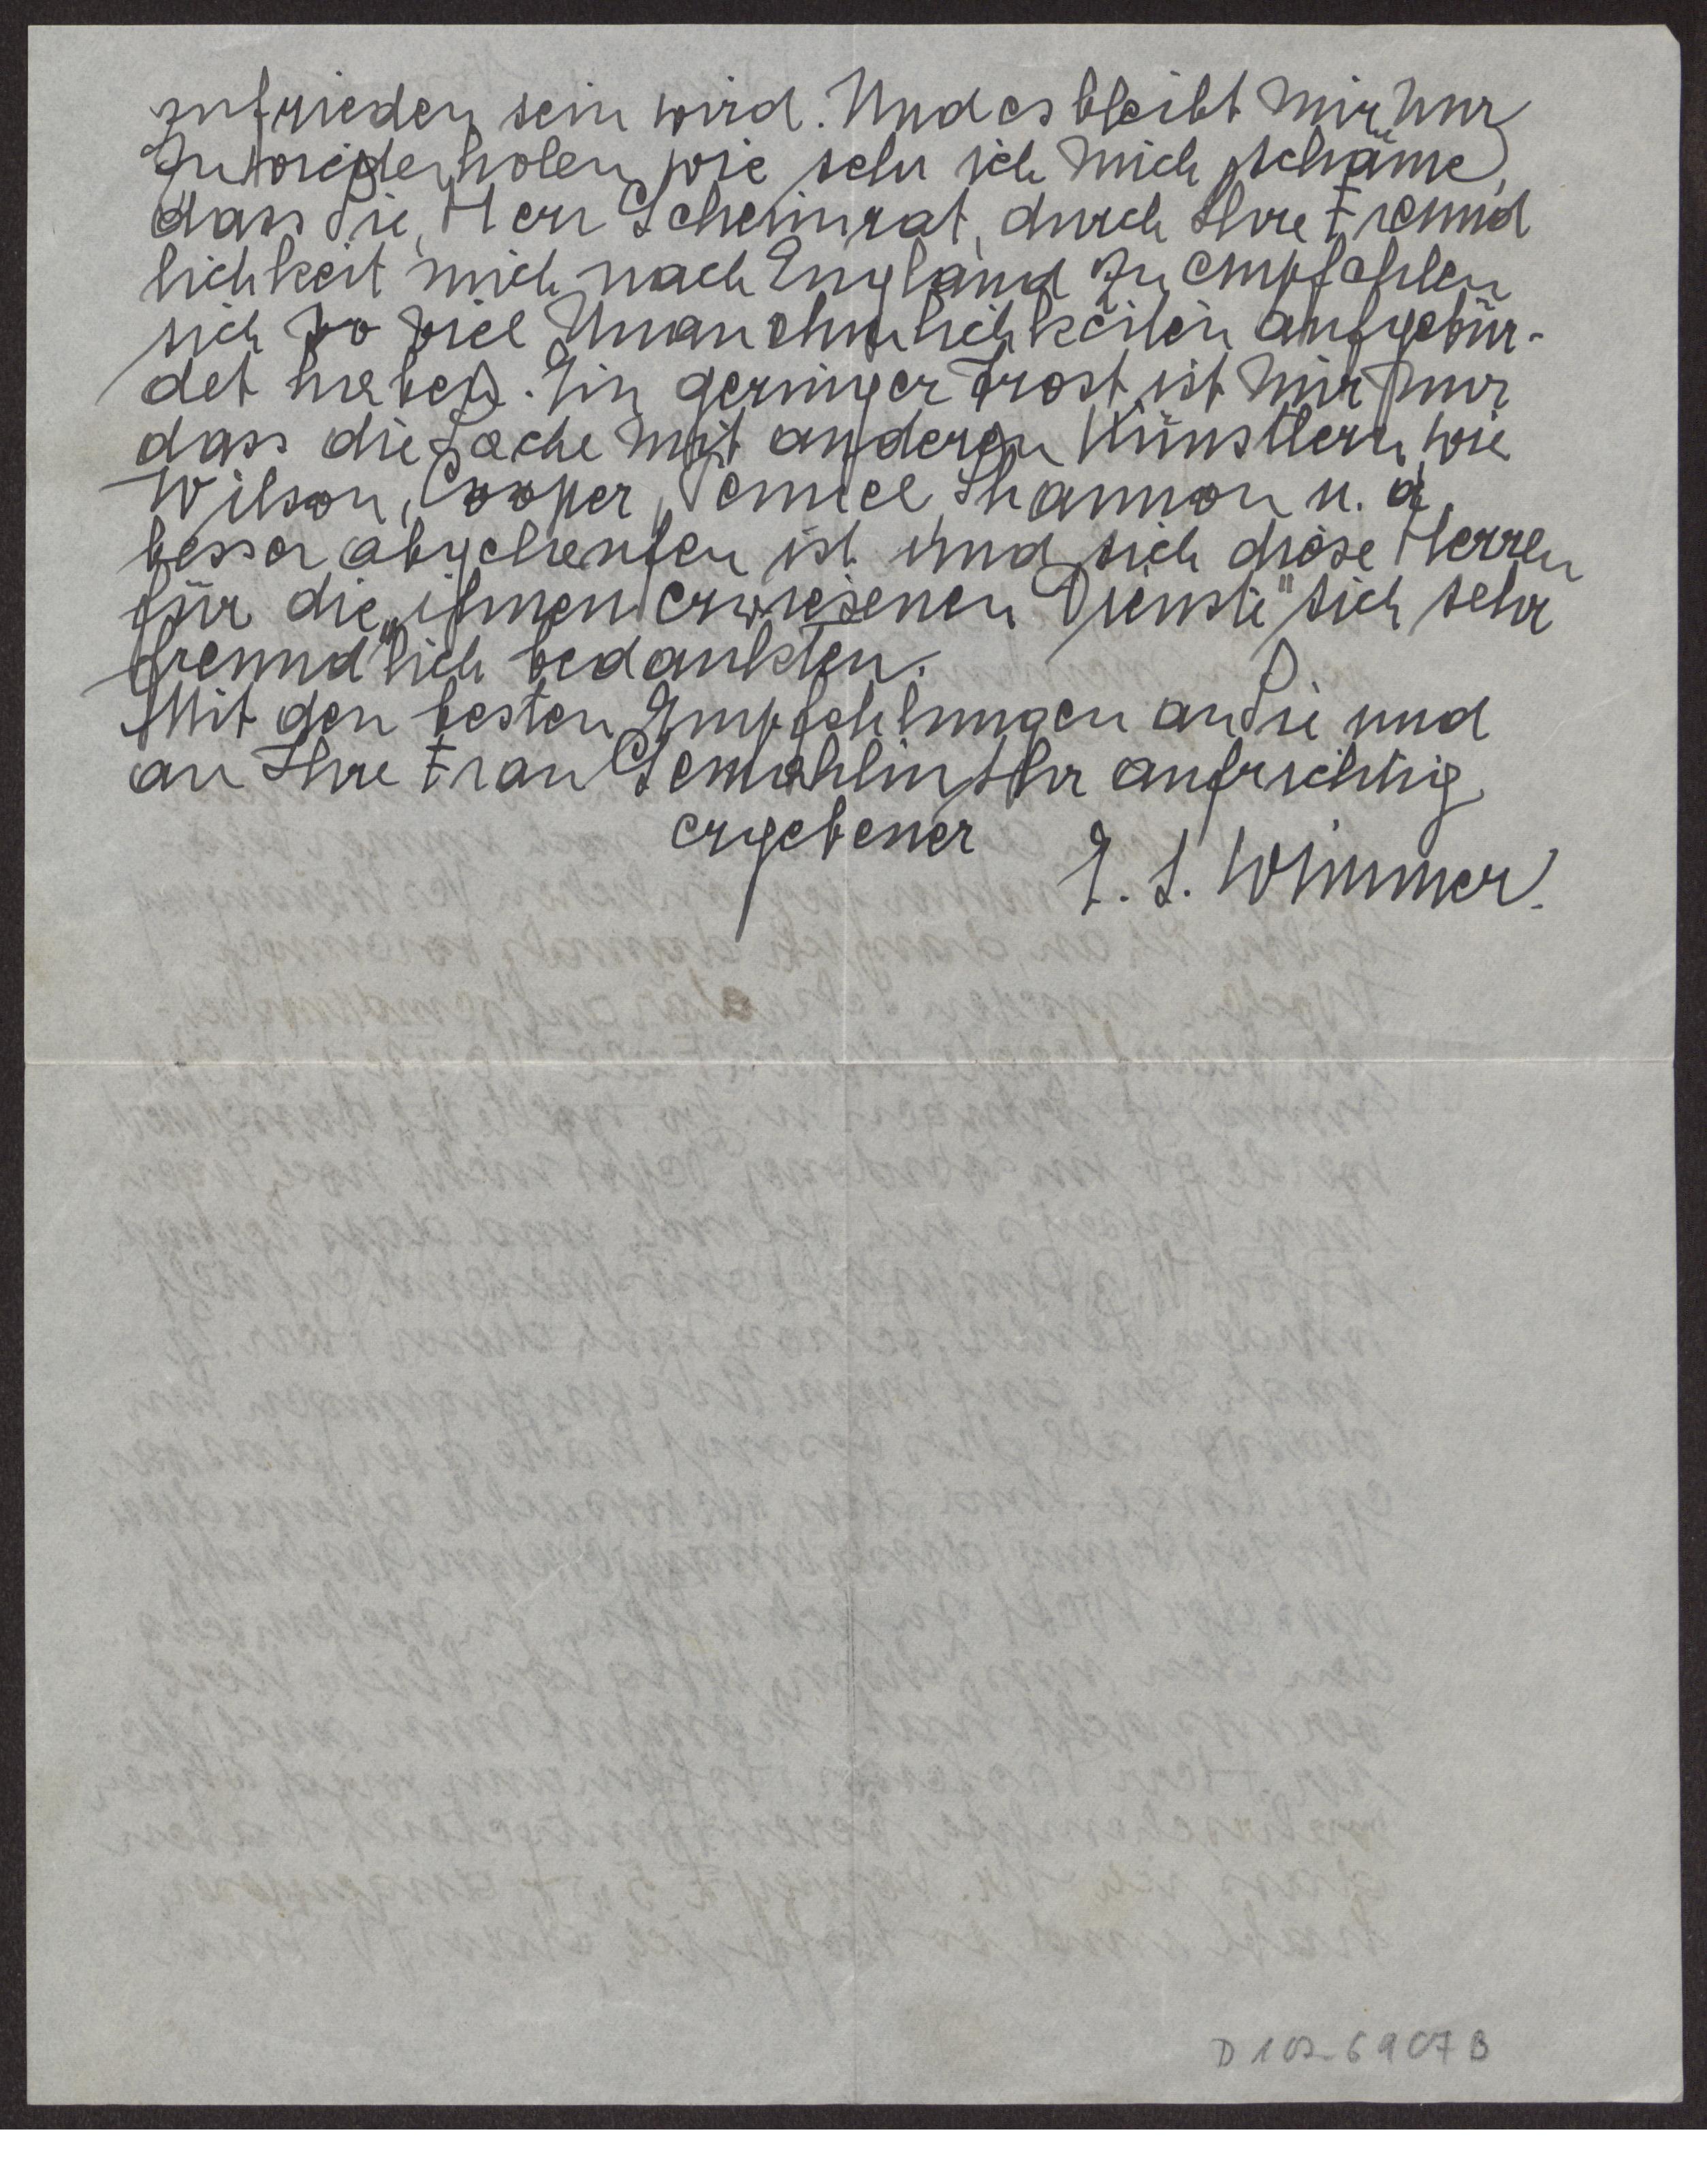 zufrieden sein wird. Und es bleibt mir nur
zu wiederholen, wie sehr ich mich schäme,
dass Sie, Herr Geheimrat, durch Ihre Freund
lichkeit mich nach England zu empfehlen
sich so viel Unannehmlichkeiten aufgebür-
det haben. Ein geringer Trost ist mir nur
dass die Sache mit anderen Künstlern, wie
Wilson, Cooper, Shannon u. a.
besser abgelaufen ist und sich diese Herren
für die „ihnen erwiesenen Dienste" sich sehr
„freund"lich bedankten.
Mit den besten Empfehlungen an Sie und
an Ihre Frau Gemahlin Ihr aufrichtig
ergebener
E. L. Wimmer.
D 102-6907 B